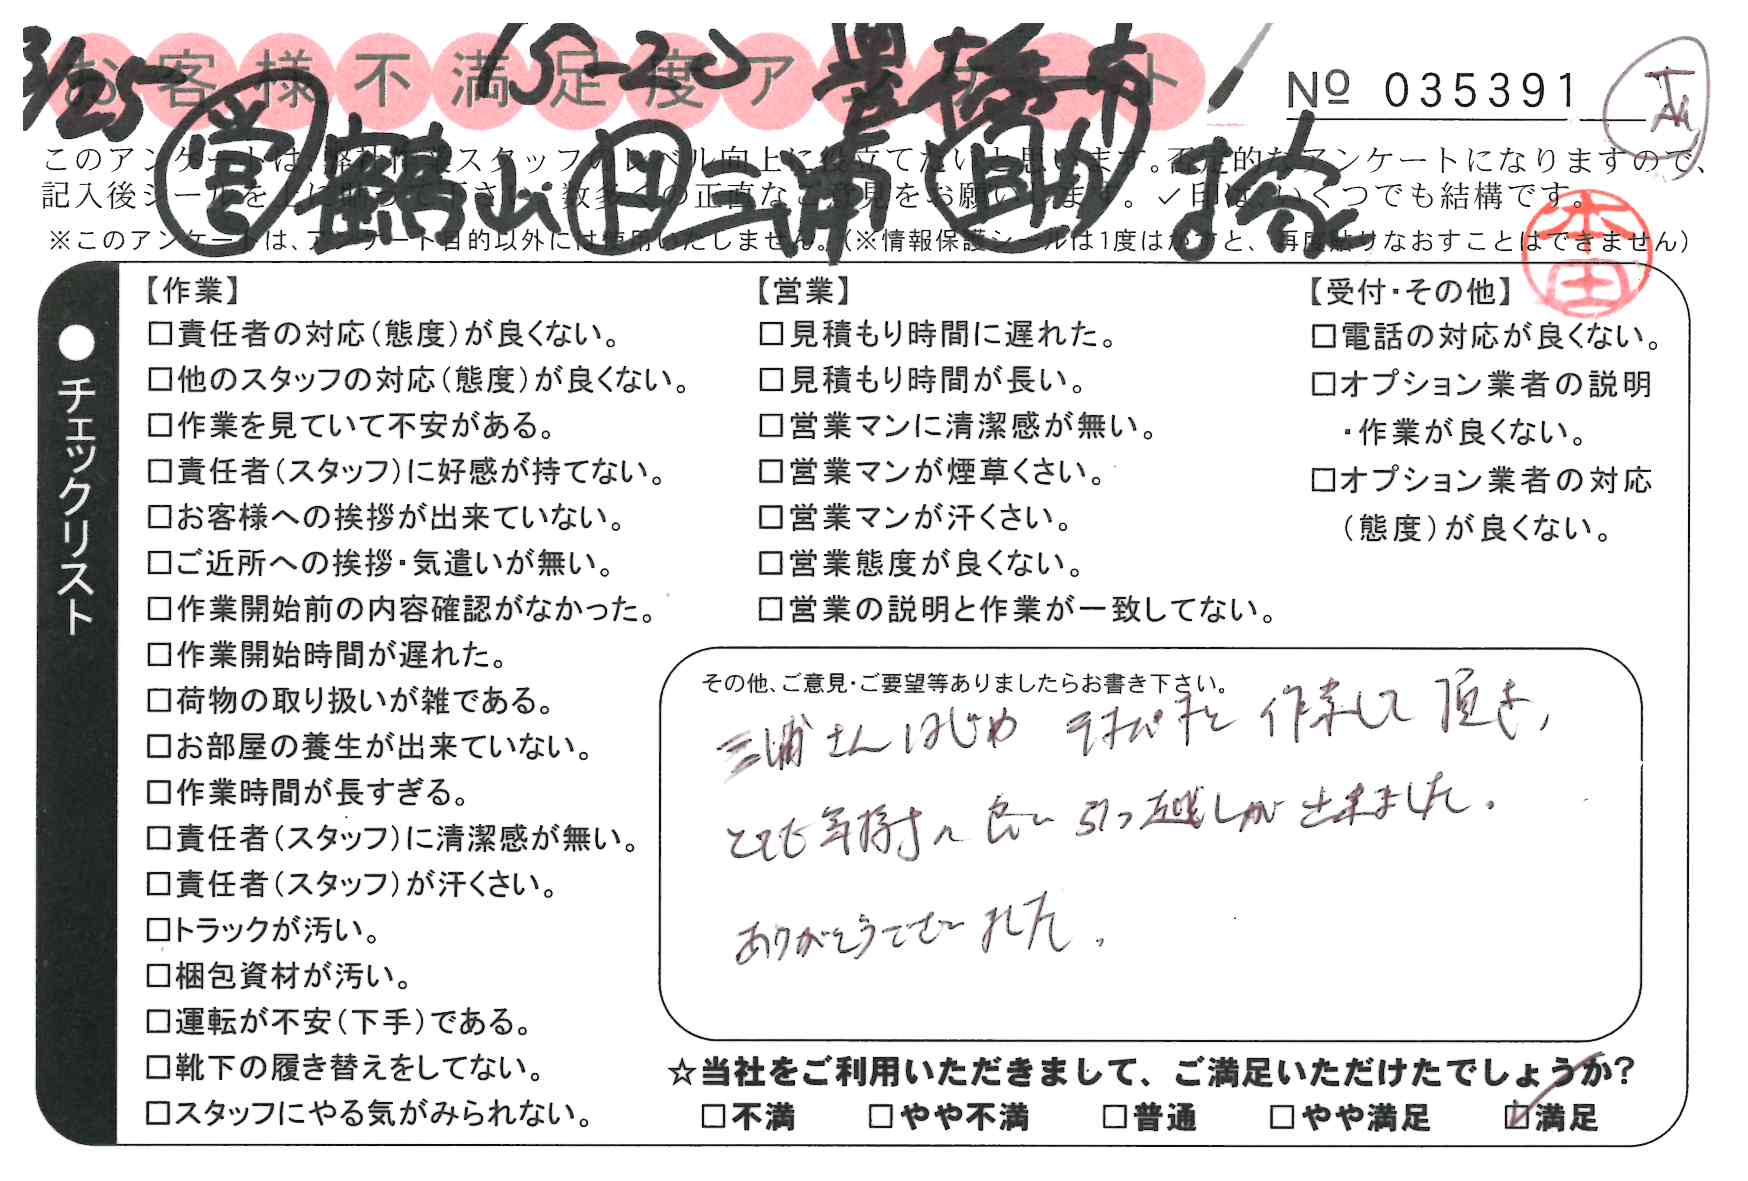 3/25 15-20 豊橋市
お客様不満足度アンケート
№ 035391
営 亀山 H 三浦 助
このアンケートは、弊社作業スタッフのレベル向上に役立てたいと思います。否定的なアンケートになりますので、
記入後シールを上に貼って下さい。数多くの正直なご意見をお願いします。✓印は、いくつでも結構です。
※このアンケートは、アンケート目的以外には使用いたしません。(※情報保護シールは1度はがすと、再度貼りなおすことはできません)
本田
●チェックリスト
【作業】
□責任者の対応(態度)が良くない。
□他のスタッフの対応(態度)が良くない。
□作業を見ていて不安がある。
□責任者(スタッフ)に好感が持てない。
□お客様への挨拶が出来ていない。
□ご近所への挨拶・気遣いが無い。
□作業開始前の内容確認がなかった。
□作業開始時間が遅れた。
□荷物の取り扱いが雑である。
□お部屋の養生が出来ていない。
□作業時間が長すぎる。
□責任者(スタッフ)に清潔感が無い。
□責任者(スタッフ)が汗くさい。
□トラックが汚い。
□梱包資材が汚い。
□運転が不安(下手)である。
□靴下の履き替えをしてない。
□スタッフにやる気がみられない。
【営業】
□見積もり時間に遅れた。
□見積もり時間が長い。
□営業マンに清潔感が無い。
□営業マンが煙草くさい。
□営業マンが汗くさい。
□営業態度が良くない。
□営業の説明と作業が一致してない。
【受付・その他】
□電話の対応が良くない。
□オプション業者の説明
・作業が良くない。
□オプション業者の対応
(態度)が良くない。
その他、ご意見・ご要望等ありましたらお書き下さい。
三浦さんはじめ てきぱきと 作業して 頂き,
とても気持ちの良い引っ越しが出来ました.
ありがとうございました.
☆当社をご利用いただきまして、ご満足いただけたでしょうか?
□不満 □やや不満 □普通 □やや満足 ☑満足